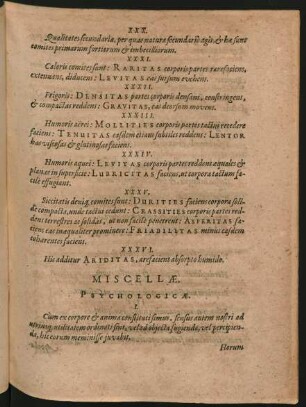 XXX.
Qualitates secundariæ, per quas natura secundariò agit, & hæ sunt
comites primarum fortiorum & imbecilliorum.
XXXI.
Caloris comites sunt: RARITAS corporis partes rarefaciens,
extenuans, diducens: LEVITAS eas sursum evehens.
XXXII.
Frigoris: DENSITAS partes corporis densans, constringens,
& compactas reddens: GRAVITAS, eas deorsum movens.
XXXIII.
Humoris aërei: MOLLITIES corporis partes tactui recedere
faciens: TENUITAS easdem etiam subtiles reddens: LENTOR
has viscosas & glutinosas faciens.
XXXIV.
Humoris aquei: LEVITAS corporis partes reddens æquales &
planas in superficie: LUBRICITAS faciens, ut corpora tactum facilè effugiant.
XXXV.
Siccitatis deniq; comites sunt: DURITIES faciens corpora solida
compacta, unde tactui cedunt: CRASSITIES corporis partes reddens
terrestres ac solidas, ut non facilè penetrent: ASPERITAS faciens
eas inæqualiter prominere: FRIABILITAS minus easdem
cohærentes faciens.
XXXVI.
His additur ARIDITAS, arefaciens absorpto humido.
MISCELLÆ.
PSYCHOLOGICÆ.
I.
Cum ex corpore & anima constituti simus, sensus autem nostri ad
nutrimq; utilitatem ordinati sint, vel ad objecta fugienda, vel percipienda,
hic eorum meminisse juvabit.
Horum